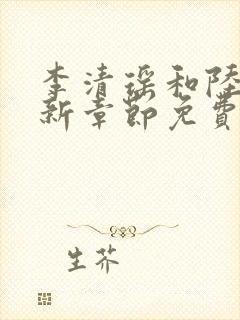 李清瑶和陸
新章節免費
生芥